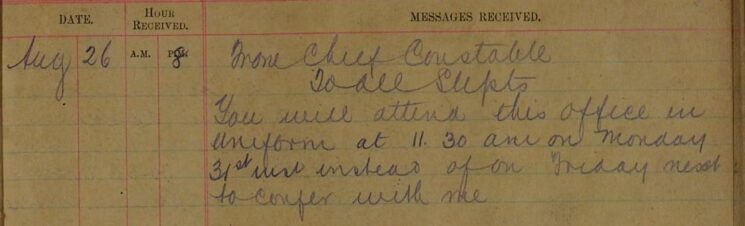 DATE. HOUR RECEIVED. MESSAGES RECEIVED.
Aug 26 A.M. P.M. 8 From Chief Constable
To all Supts
You will attend this office in
uniform at 11.30 am on Monday
31st inst instead of on Friday next
to confer with me